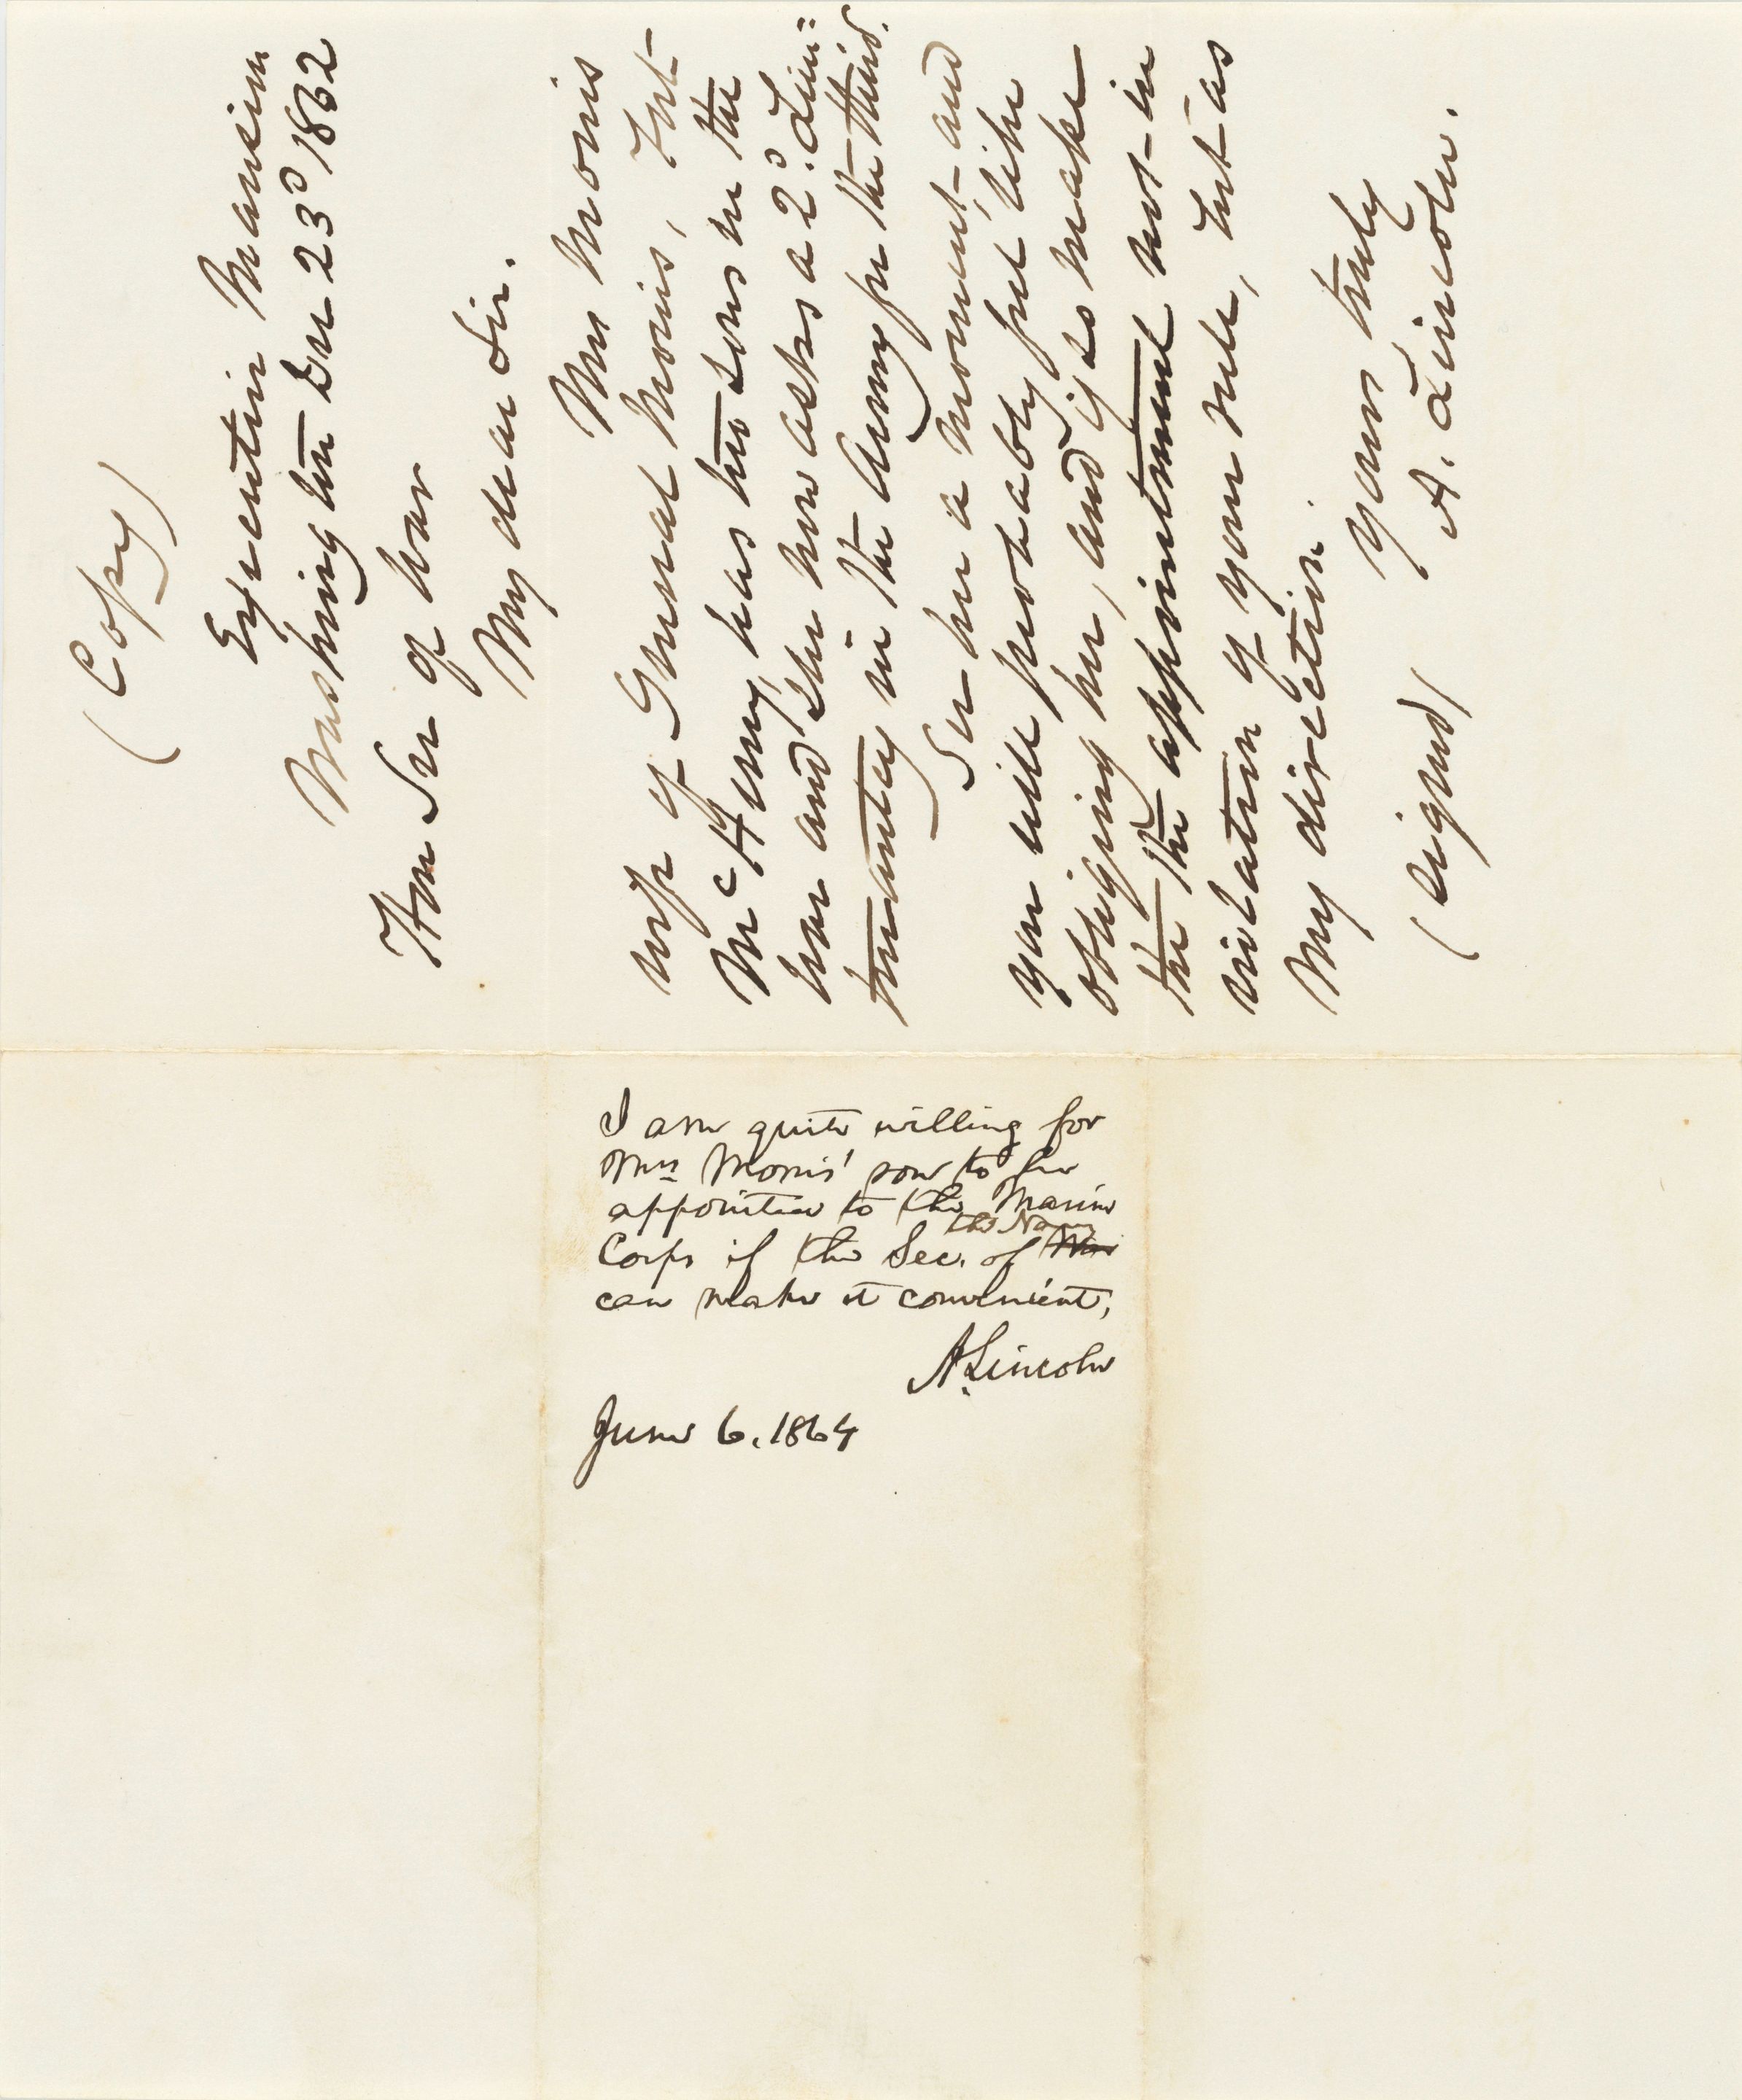 (Copy)
Executive Mansion
Washington Dec 23d 1862
Hon Sec of War
My dear Sir.
Mrs Morris
wife of General Morris, Fort-
McHenry, has two sons in the
war and she now asks a 2d. Lieu=
tenantcy in the Army for the third.
See her a moment, and
you will probably feel like
obliging her, and if so make
the the appointment not in
violation of your rule, but as
My direction.
Yours truly
(Signed) A. Lincoln.
I am quite willing for
Mrs Morris' son to be
appointed to the Marine
Corps if the Sec. of the Navy War
can make it convenient,
A. Lincoln
June 6. 1864